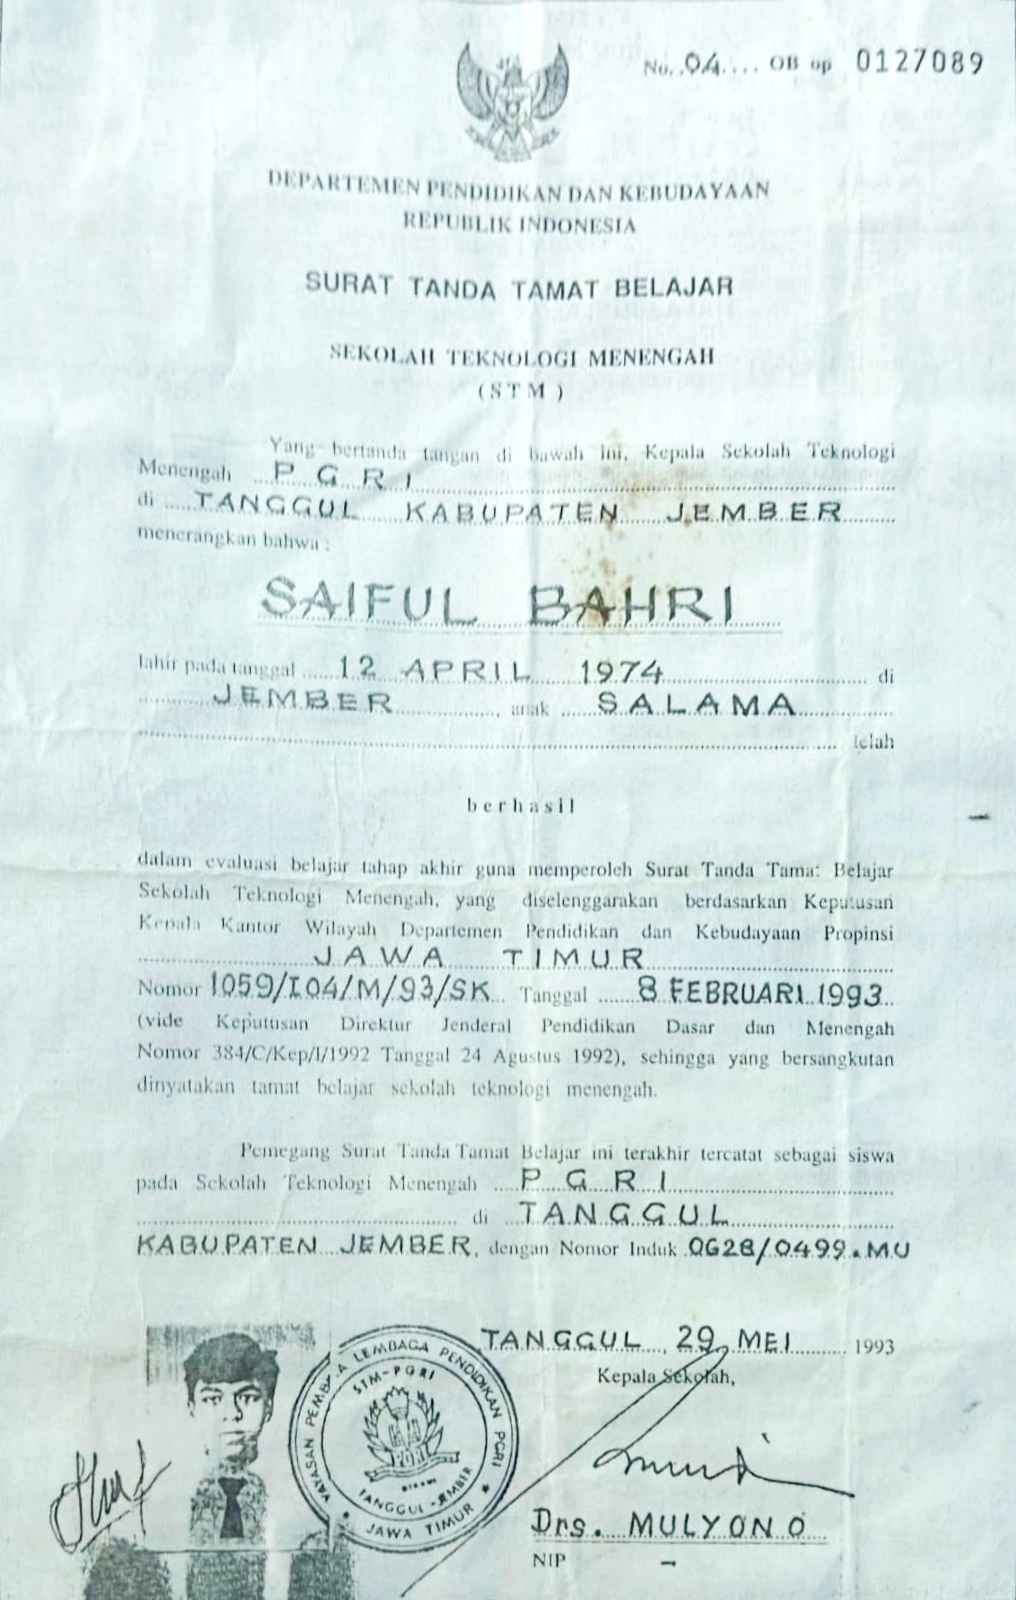 No. 04 .... OB op 0127089
DEPARTEMEN PENDIDIKAN DAN KEBUDAYAAN
REPUBLIK INDONESIA
SURAT TANDA TAMAT BELAJAR
SEKOLAH TEKNOLOGI MENENGAH
(STM)
Yang bertanda tangan di bawah ini, Kepala Sekolah Teknologi
Menengah PGRI
di TANGGUL KABUPATEN JEMBER
menerangkan bahwa :
SAIFUL BAHRI
lahir pada tanggal 12 APRIL 1974 di
JEMBER, anak SALAMA
telah
berhasil
dalam evaluasi belajar tahap akhir guna memperoleh Surat Tanda Tamat Belajar
Sekolah Teknologi Menengah, yang diselenggarakan berdasarkan Keputusan
Kepala Kantor Wilayah Departemen Pendidikan dan Kebudayaan Propinsi
JAWA TIMUR
Nomor 1059/I04/M/93/SK Tanggal 8 FEBRUARI 1993
(vide Keputusan Direktur Jenderal Pendidikan Dasar dan Menengah
Nomor 384/C/Kep/I/1992 Tanggal 24 Agustus 1992), sehingga yang bersangkutan
dinyatakan tamat belajar sekolah teknologi menengah.
Pemegang Surat Tanda Tamat Belajar ini terakhir tercatat sebagai siswa
pada Sekolah Teknologi Menengah PGRI
di TANGGUL
KABUPATEN JEMBER, dengan Nomor Induk 0628/0499.MU
TANGGUL, 29 MEI 1993
Kepala Sekolah,
YAYASAN PEMBINA LEMBAGA PENDIDIKAN PGRI
STM-PGRI
PGRI
TANGGUL - JEMBER
JAWA TIMUR
Drs. MULYONO
NIP -